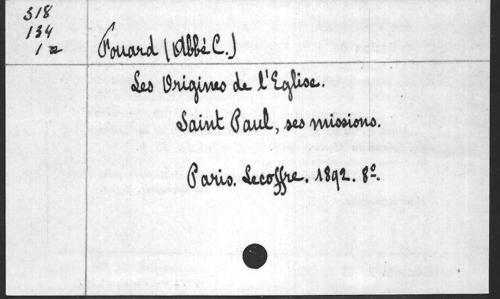 318
134
1
Fouard (Abbé C.)
Les Origines de l'Eglise.
Saint Paul, ses missions.
Paris. Lecoffre. 1892. 8º.